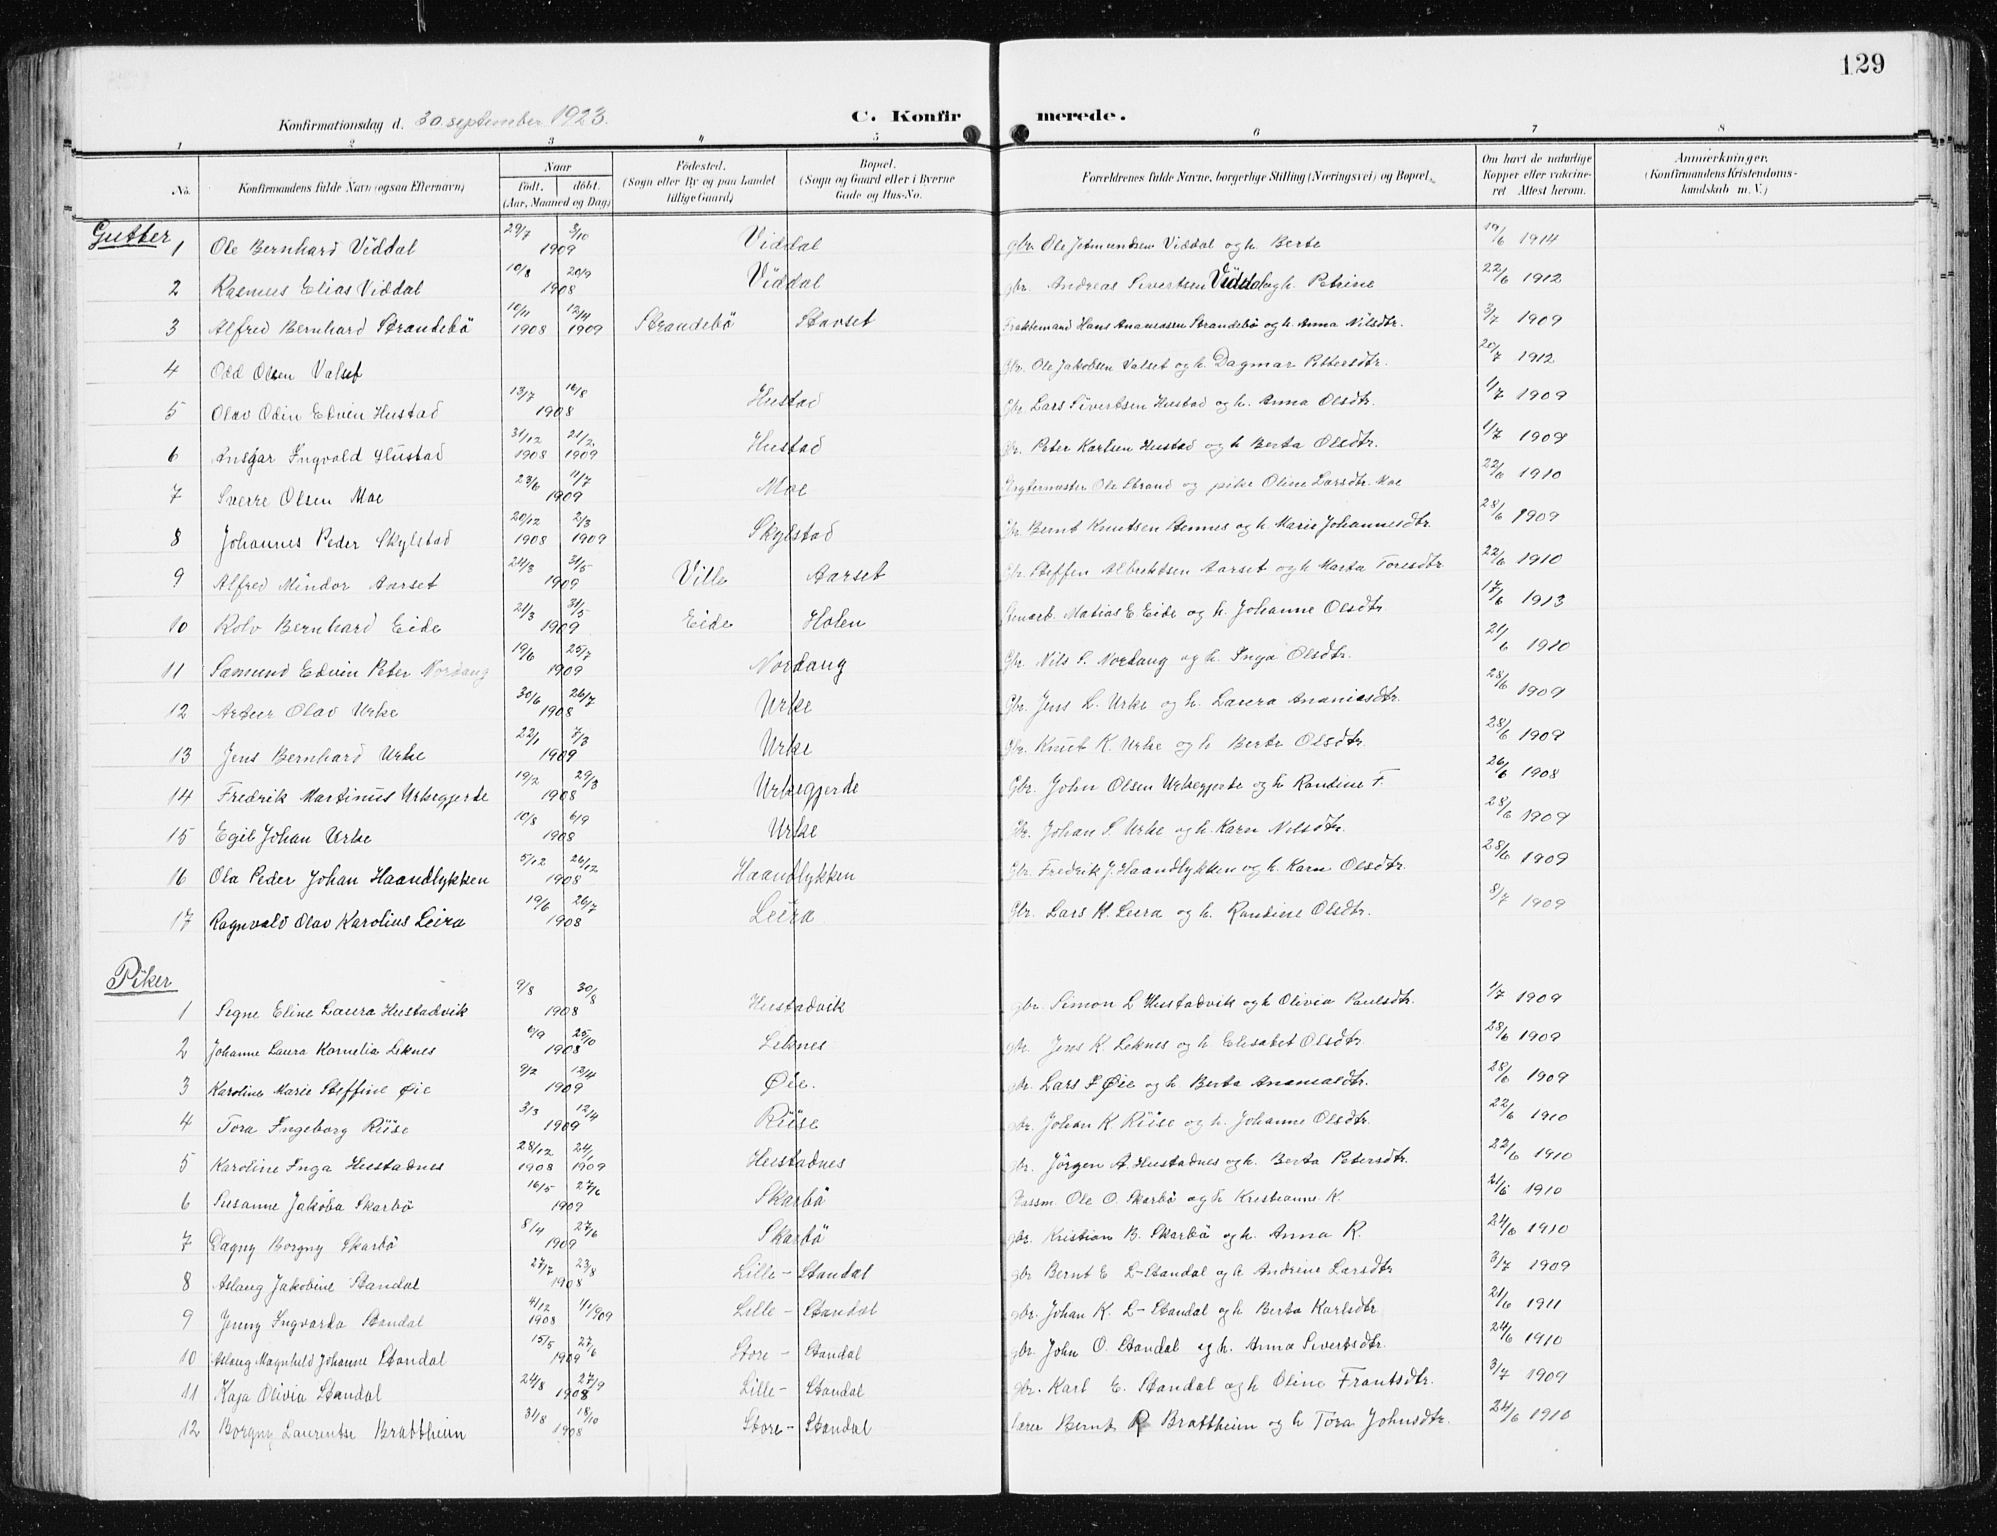 129
Konfirmationsdag d. 30. september 1923.
C. Konfirmerede.
1 2 3 4 5 6 7 8
No. Konfirmandens fulde Navn (ogsaa Efternavn) Naar födt. döbt. (Aar, Maaned og Dag) Födested. (Sogn eller By og paa Landet tillige Gaard) Bopæl. (Sogn og Gaard eller i Byerne Gade og Hus-No. Forældrenes fulde Navne, borgerlige Stilling (Næringsvei) og Bopæl. Om havt de naturlige Kopper eller vakcineret Attest herom. Anmærkninger. (Konfirmandens Kristendomskundskab m. V.)
Gutter
1 Ole Bernhard Viddal 29/7 3/10 1909 Viddal gbr. Ole Jetmundsen Viddal og h. Berte 19/6 1914
2 Rasmus Elias Viddal 10/8 20/9 1908 Viddal gbr. Andreas Sivertsen Viddal og h. Petrine 22/6 1912
3 Alfred Bernhard Strandebö 10/11 1908 12/4 1909 Strandebö Stavset Hans Ananiassen Strandebö og h. Anna Nilsdtr. 3/7 1909
4 Odd Olsen Valset Gbr. Ole Jakobsen Valset og h. Dagmar Pettersdtr. 20/7 1912
5 Olav Odin Edvin Hustad 13/7 16/8 1908 Hustad Gbr Lars Sivertsen Hustad og h. Anna Olsdtr. 1/7 1909
6 Ansgar Ingvald Hustad 31/12 1908 21/2 1909 Hustad Gbr. Peter Karlsen Hustad og h Berta Olsdtr. 1/7 1909
7 Sverre Olsen Moe 23/6 11/7 1909 Moe Ole Strand og pike Oline Larsdtr. Moe 22/6 1910
8 Johannes Peder Skylstad 20/12 1908 2/3 1909 Skylstad Gbr Bernt Knutsen Stennes og h. Marie Johannesdtr 28/6 1909
9 Alfred Mindor Aarset 24/3 31/5 1909 Ville Aarset Gbr. Steffen Albriktsen Aarset og h Marta Toresdtr 22/6 1910
10 Rolv Bernhard Eide 21/3 31/5 1909 Eide Holen Matias E. Eide og h. Johanne Olsdtr. 17/6 1913
11 Sæmund Edvin Peter Nordang 19/6 25/7 1909 Nordang Gbr Nils S. Nordang og h. Inga Olsdtr. 21/6 1910
12 Artur Olav Urke 30/6 26/7 1908 Urke Gbr. Jens L. Urke og h. Laura Ananiasdtr. 28/6 1909
13 Jens Bernhard Urke 22/1 7/3 1909 Urke Gbr. Knut K. Urke og h Berte Olsdtr. 28/6 1909
14 Fredrik Martinus Urkegjerde 19/2 29/3 1908 Urkegjerde Gbr. John Olsen Urkegjerde og h. Randine F. 26/6 1908
15 Egil Johan Urke 10/8 6/9 1908 Urke Gbr. Johan S. Urke og h. Karn Nilsdtr. 28/6 1909
16 Ola Peder Johan Haandlykken 5/12 26/12 1908 Haandlykken Gbr. Fredrik J. Haandlykken og h. Karn Olsdtr. 28/6 1909
17 Ragnvald Olav Karolius Leira 19/6 26/7 1908 Leira Gbr. Lars K. Leira og h. Randine Olsdtr. 8/7 1909
Piker
1 Signe Eline Laura Hustadvik 9/8 30/8 1908 Hustadvik gbr. Simon L Hustadvik og h Olivia Paulsdtr. 1/7 1909
2 Johanne Laura Kornelia Leknes 6/9 25/10 1908 Leknes gbr. Jens K. Leknes og h Elisabet Olsdtr 28/6 1909
3 Karoline Marie Steffine Øie 9/2 12/4 1909 Øie. gbr. Lars S Øie og h Berta Ananiasdtr. 28/6 1909
4 Tora Ingeborg Riise 3/3 12/4 1909 Riise gbr. Johan K Riise og h. Johanne Olsdtr. 22/6 1910
5 Karoline Inga Hustadnes 28/12 1908 24/1 1909 Hustadnes gbr. Jörgen A. Hustadnes og h. Berta Petersdtr. 22/6 1910
6 Susanne Jakoba Skarbö 16/5 27/6 1909 Skarbö Ole O. Skarbö og h Kristianne K. 21/6 1910
7 Dagny Borgny Skarbö 8/4 27/6 1909 Skarbö gbr. Kristian B. Skarbö og h. Anna R. 24/6 1910
8 Aslaug Jakobine Standal 27/7 23/8 1908 Lille- Standal gbr Bernt E L-Standal og h Andrine Larsdtr 3/7 1909
9 Jenny Ingvarda Standal 4/12 1908 1/1 1909 Lille- Standal gbr. Johan K. L-Standal og h Berta Karlsdtr 21/6 1911
10 Aslaug Magnhild Johanne Standal 15/5 27/6 1909 Store- Standal gbr. John O. Standal og h. Anna Sivertsdtr. 24/6 1910
11 Kaja Olivia Standal 24/8 27/9 1908 Lille- Standal gbr. Karl E. Standal og h Oline Frantsdtr. 3/7 1909
12 Borgny Laurentse Brattheim 31/8 18/10 1908 Store- Standal Lærer Bernt R Brattheim og h Tora Johnsdtr. 24/6 1910